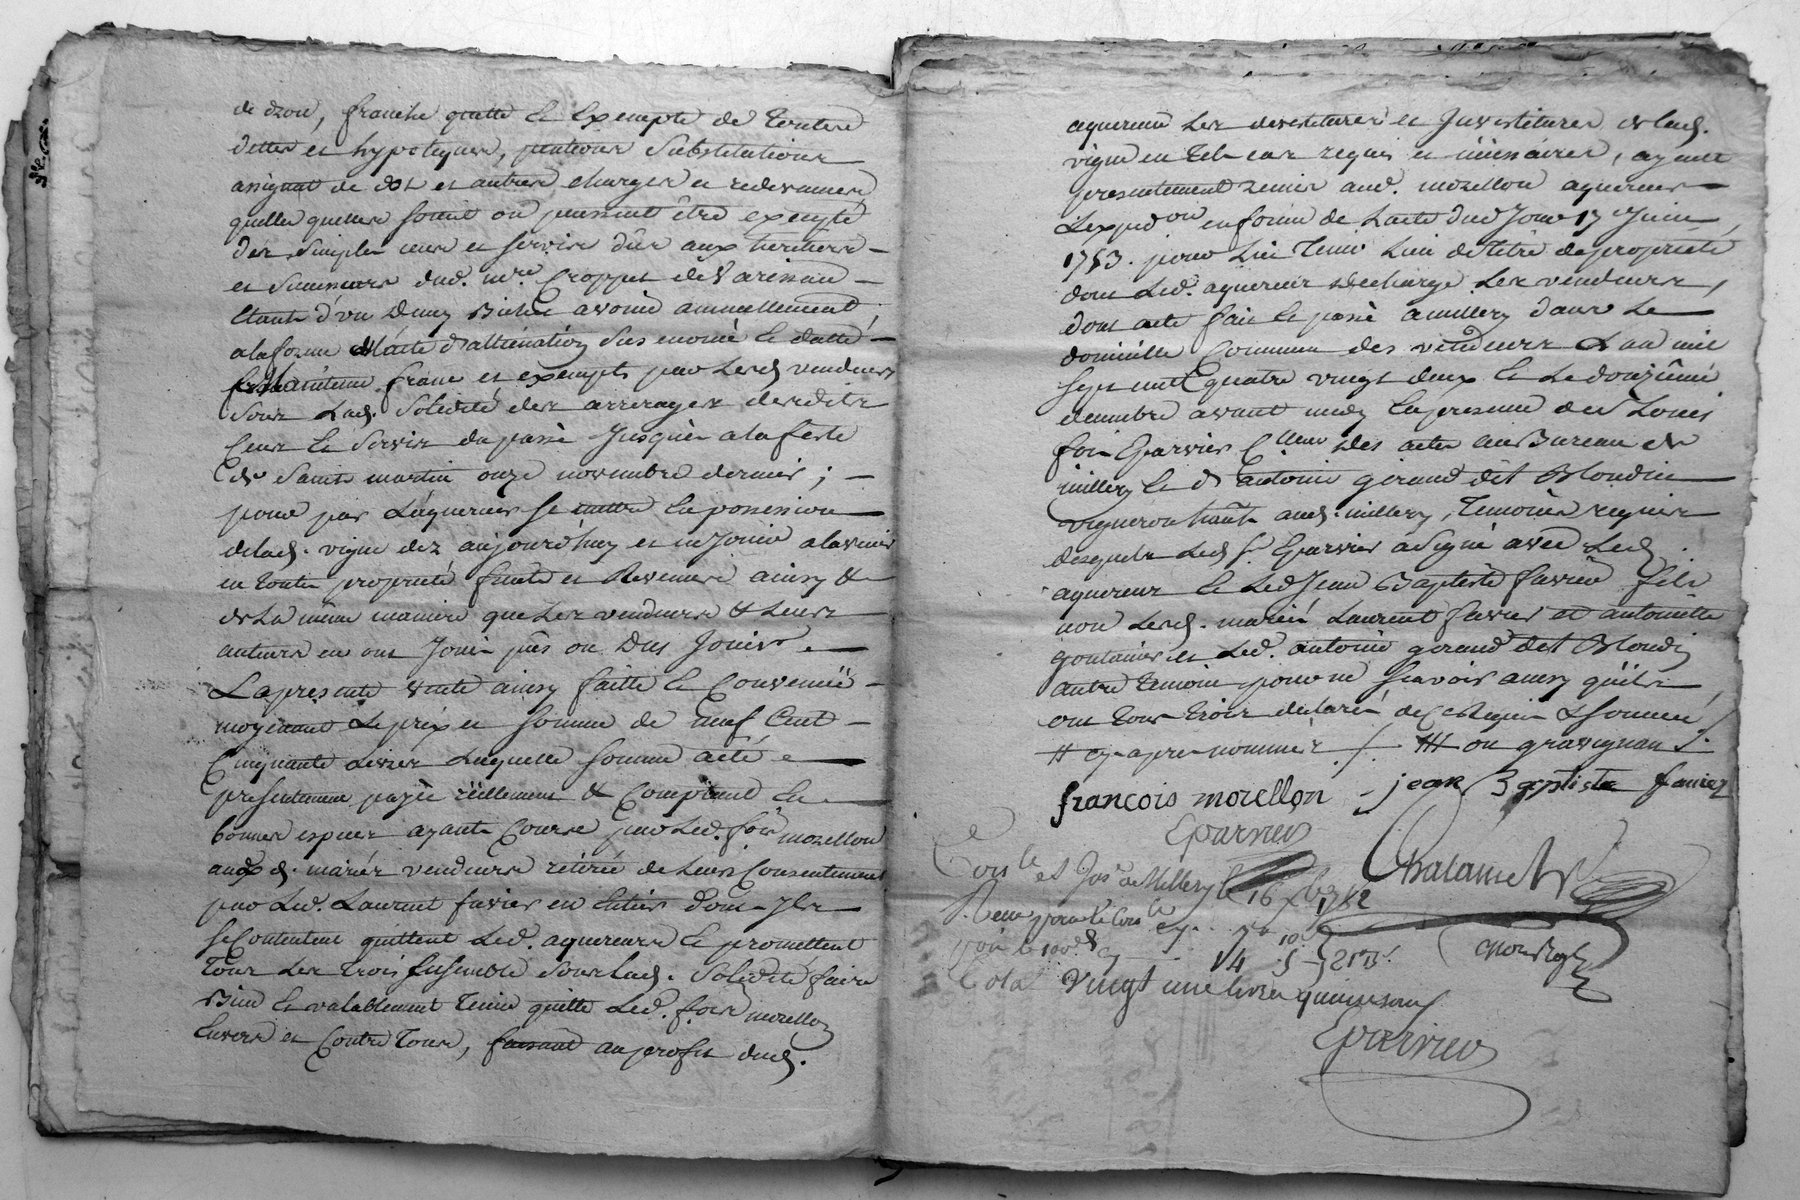 de droit, franche quitte et Exempte de toutes
dettes et hypoteques, pentions Substitutions
assignat de dot et autres charges et redevances
quelles quelles soient ou puissent être excepté
des simples cens et servis dûs aux heritiers
et Successeurs dud. mre. Croppet de Varissan
a la forme de l'acte d'alliénation sus enoncé et datté
franc et exempts par lesd vendeurs
sous lad. Solidité des arrerages desdits
Cens et Servis du passé Jusques a la feste
de Saint martin onze novembre dernier ;
pour par l'aquereur se mettre en possession
de lad. vigne dez aujourd'huy et en Jouir a lavenir
en toute propriété fruits et Revenus ainsy &
de La même maniere que Les vendeurs & Leurs
auteurs en ont Joui pûs ou Dus Jouir
La presente vente ainsy faitte et Convenuë
moyenant Le prix et somme de neuf Cent
Cinquante Livres Laquelle somme a eté
presentement payée réellement & Comptant En
bonnes especes ayants Cours par Led. fois morellon
auxd. mariés vendeurs retirée de Leurs Consentement
par Led. Laurent favier en Entier dont Ils
se Contentent quittent Led. aquereur et promettent
tous Les trois Ensemble sous lad. Solidité faire
Bien et valablement tenir quitte Led. fois morellon
Envers et Contre Tous, faisant au profit dud.
aquereur Les devestitures et Investitures de lad.
vigne en tel cas requis et necessaires, ayant
presentement remis aud. morellon aquereur
L'expedon en forme de L'acte dud Jour 17 Juin
1753. pour lui tenir Lieu de titre de propriété
dont Led. aquereur decharge Les vendeurs,
dont acte fait et passé a millery dans Le
domicille Commun des vendeurs L'an mil
sept cent quatre vingt deux et Le douzieme
decembre avant midy En presence de sr Louis
fois Eparvier Clleur des actes au Bureau de
millery et d'antoine giraud dit Blondin
vigneron hant. aud. millery, temoins requis
desquels Led sr Eparvier a Signé avec Led.
aquereur et Led Jean Baptiste favier fils
non Lesd. mariés Laurent favier et antoinette
goutanier et Led. antoine giraud dit Blondin
autre temoin pour ne sçavoir ainsy qu'ils
ont tous trois declaré de ce Requis & sommés
# cy-apres nommés /. ## ou gravignan /.
francois morellon jean Baptiste favier
Eparvier
Chalamel
Conlé et Insé a Millery le 16 xbre 1782
Reçu pour le conlé cy 7# 10s
14 5
total vingt une livres quinze sous
Eparvier